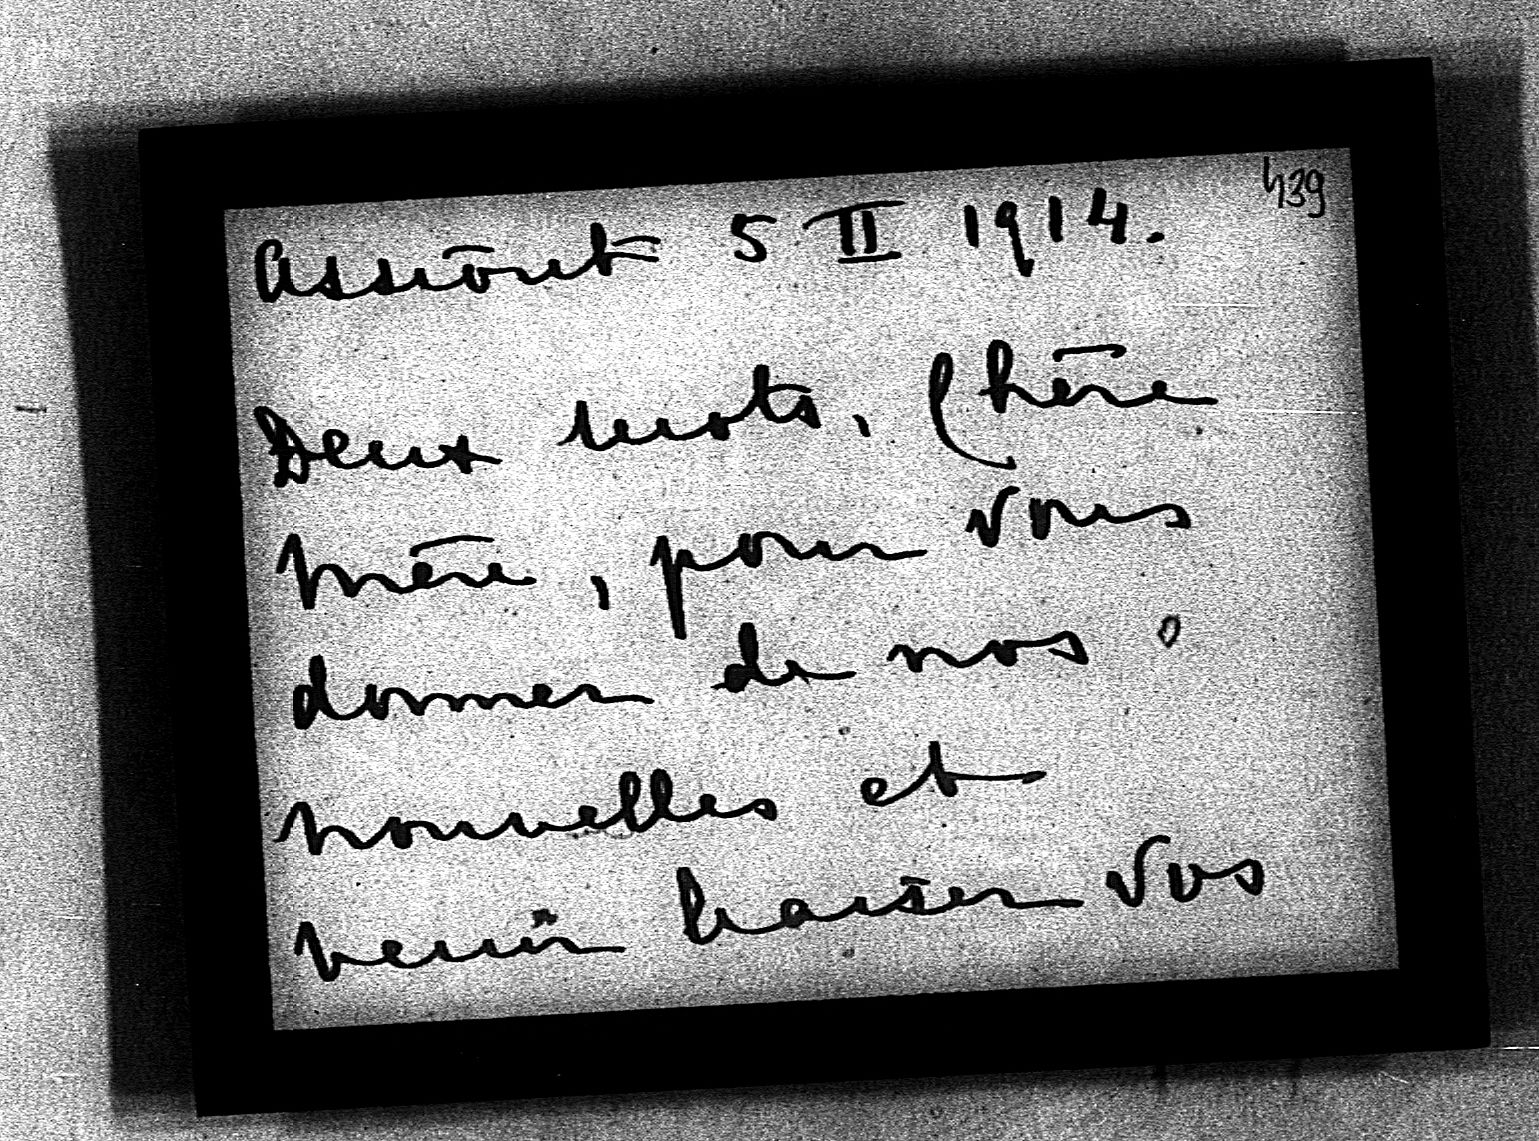 439
Assiout 5 II 1914.
Deux mots, Chère
Mère, pour vous
donner de nos
nouvelles et
venir baiser vos